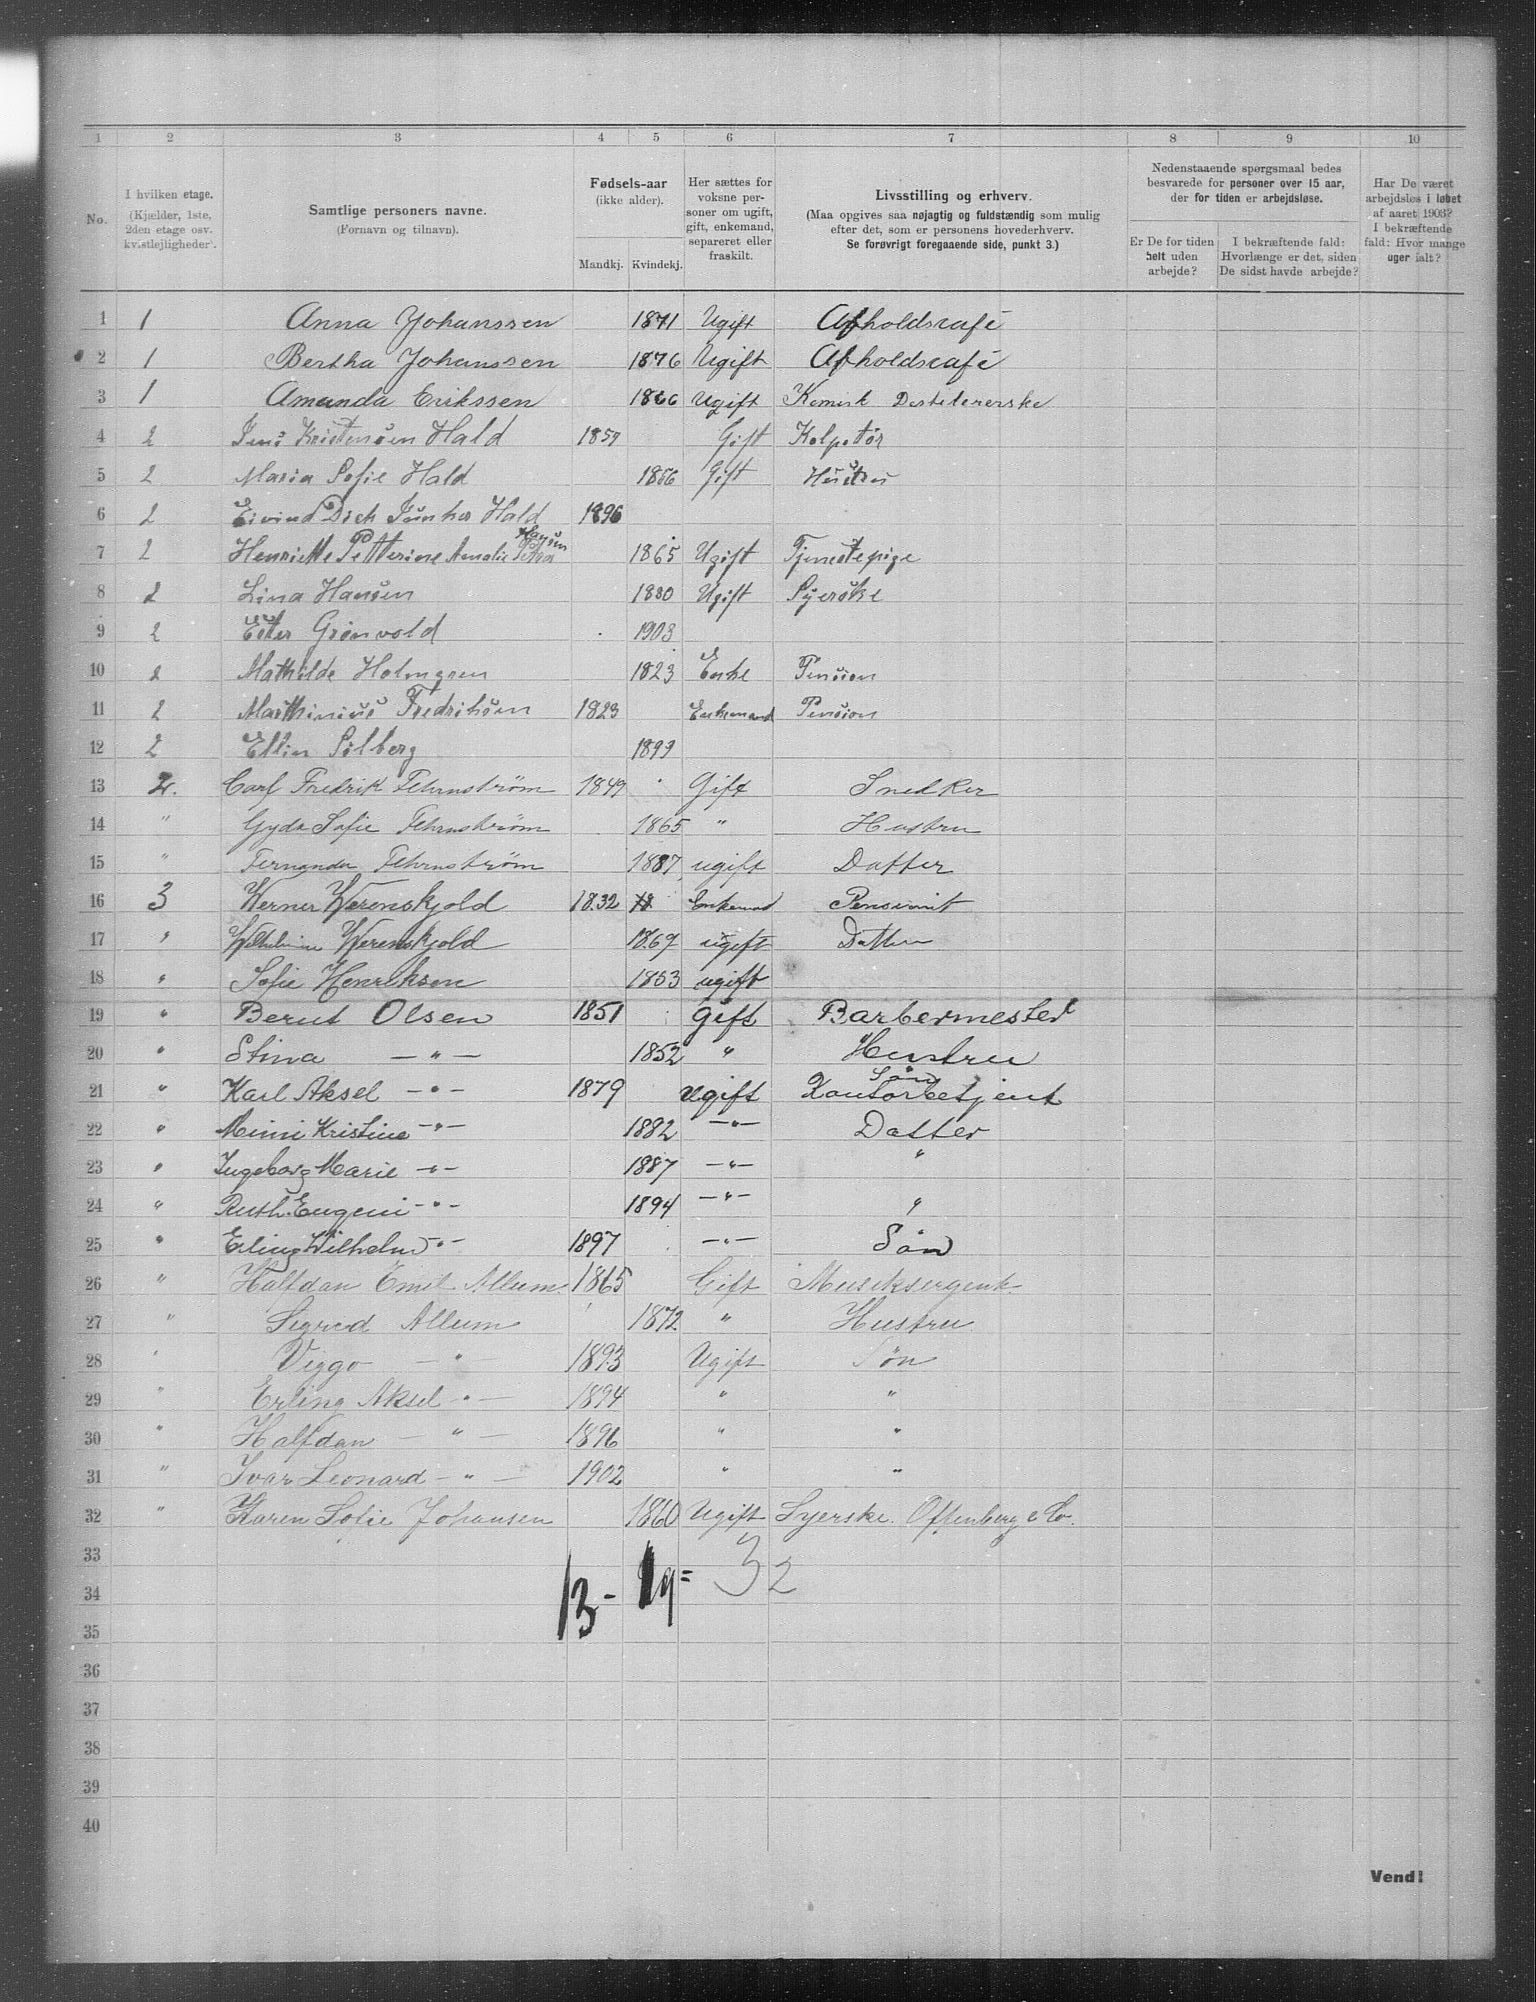 1 2 3 4 5 6 7 8 9 10
No.
I hvilken etage. (Kjælder, 1ste, 2den etage osv. kvistlejligheder).
Samtlige personers navne. (Fornavn og tilnavn).
Fødsels-aar (ikke alder). Mandkj. Kvindekj.
Her sættes for voksne personer om ugift, gift, enkemand, separeret eller fraskilt.
Livsstilling og erhverv. (Maa opgives saa nøjagtig og fuldstændig som mulig efter det, som er personens hovederhverv. Se forøvrigt foregaaende side, punkt 3.)
Nedenstaaende spørgsmaal bedes besvarede for personer over 15 aar, der for tiden er arbejdsløse.
Er De for tiden helt uden arbejde?
I bekræftende fald: Hvorlænge er det, siden De sidst havde arbejde?
Har De været arbejdsløs i løbet af aaret 1903? I bekræftende fald: Hvor mange uger ialt?
1 1 Anna Johanssen 1871 Ugift Afholdscafé
2 1 Bertha Johanssen 1876 Ugift Afholdscafé
3 1 Amanda Erikssen 1866 Ugift Kemisk Destelererske
4 2 Jens Kristensen Hald 1859 Gift Kolpotør
5 2 Maria Sofie Hald 1856 Gift Hustru
6 2 Eivind Dick Junker Hald 1896
7 2 Henriette Petterine Amalie Hansen 1865 Ugift Tjenestepige
8 2 Lina Hansen 1880 Ugift Syerske
9 2 Ester Grønvold 1903
10 2 Mathilde Holmgren 1823 Enke Pension
11 2 Marthinius Fredriksen 1823 Enkemand Pension
12 2 Ellin Solberg 1899
13 2. Carl Fredrik Fehrnstrøm 1849 Gift Snedker
14 " Gyda Sofie Fehrnstrøm 1865 " Hustru
15 " Fernanda Fehrnstrøm 1887 ugift Datter
16 3 Werner Werenskjold 1832 Enkemand Pensionist
17 " Wilhelmine Werenskjold 1869 ugift Datter
18 " Sofie Henriksen 1853 ugift
19 " Bernt Olsen 1851 Gift Barbermester
20 " Stina — " — 1852 " Hustru
21 " Karl Aksel — " — 1879 Ugift Søn Kontorbetjent
22 " Mimi Kristine — " — 1882 — " — Datter
23 " Ingeborg Marie — " — 1887 — " — "
24 " Ruth Eugeni — " — 1894 — " — "
25 " Erling Wilhelm — " — 1897 — " — Søn
26 " Halfdan Emil Allum. 1865 Gift Musiksergent.
27 " Sigrid Allum 1872 " Hustru
28 " Viggo — " — 1893 Ugift Søn
29 " Erling Aksel — " — 1894 " "
30 " Halfdan — " — 1896 " "
31 " Ivar Leonard — " — 1902 " "
32 " Karen Sofie Johansen 1860 Ugift Syerske. Offenberg & Co.
33
34 13 - 19 = 32
35
36
37
38
39
40
Vend!